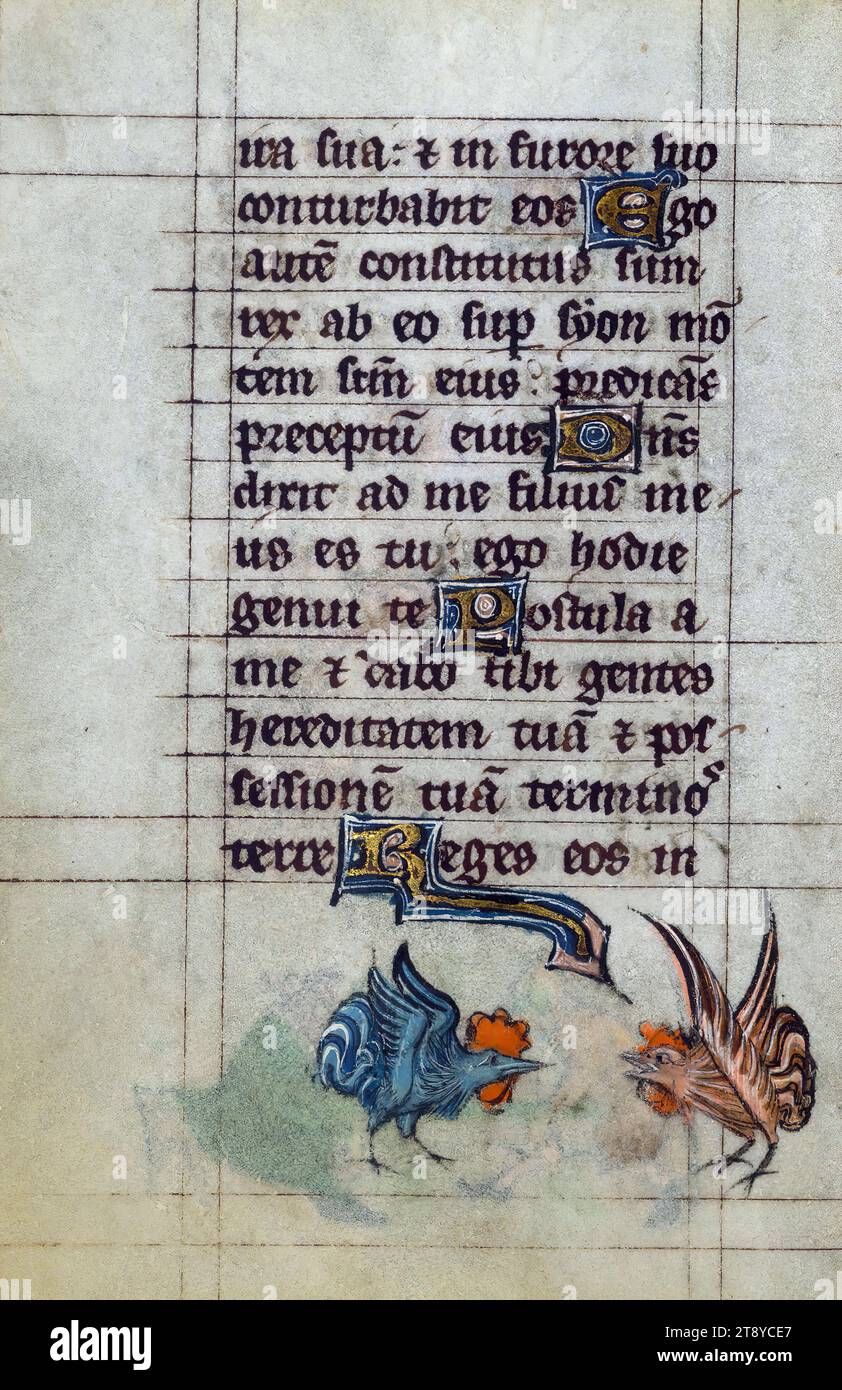 ira sua: ⁊ in furore suo
conturbabit eos Ego
autē constitutus sum
rex ab eo sup syon mō
tem scm̄ eius: predicās
preceptū eius. Dn̄s
dixit ad me filius me
us es tu: ego hodie
genui te Postula a
me ⁊ dabo tibi gentes
hereditatem tuā ⁊ pos
sessionē tuā termino
terre Reges eos in
alamy
a
a
a
a
alamy
Image ID: 2T8YCE7
www.alamy.com